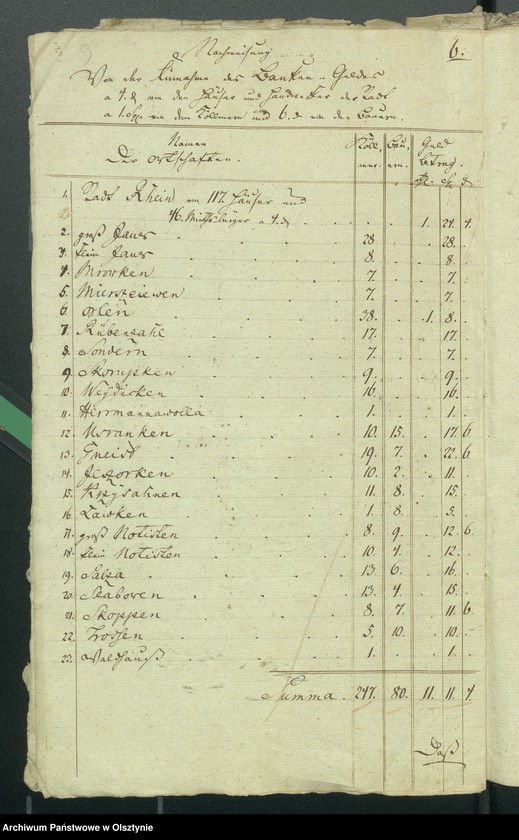 6.
Nachweisung
Von der Einnahme des Banken-Geldes
a 4. d von den Häuser und Handwerker der Stadt
a 1. von dem Köllmern und 6. d von den Bauern.
Namen
Der Ortschaften.
Köll, mer. Bau, ern. Geld betrag.
1. Stadt Rhein von 117. Häuser und
46. a 4. d 1. 24. 4.
2. groß Jauer 28. 28.
3. klein Jauer 8. 8.
4. Mrowken 7. 7.
5. Mierszeiewen 7. 7.
6. Orlen 38. 1. 8.
7. Rübenzahl 17. 17.
8. Sondern 7. 7.
9. Skorupken 9. 9.
10. Weydicken 16. 16.
11. Herrmannawolla 1. 1.
12. Uszranken 10. 15. 17. 6
13. Gneist 19. 7. 22. 6
14. Jeszorken 10. 2. 11.
15. Krzysahnen 11. 8. 15.
16. Lawken 1. 8. 5.
17. groß Notisten 8. 9. 12. 6.
18. klein Notisten 10. 4. 12.
19. Salza 13. 6. 16.
20. Skaboven 13. 4. 15.
21. Skoppen 8. 7. 11. 6
22. Trossen 5. 10. 10.
23. Waldhauß 1. 1.
Summa. 247. 80. 11. 11. 4.
Daß
Archiwum Państwowe w Olsztynie